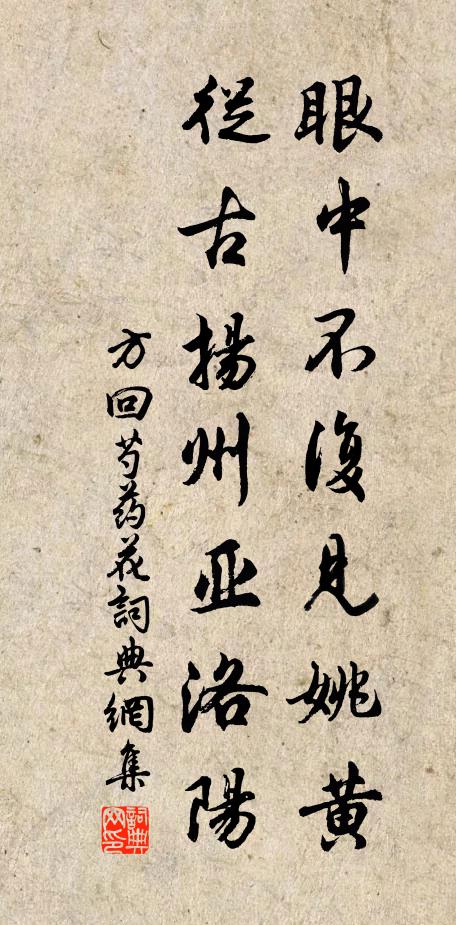 眼中不復見姚黃
從古揚州亚洛陽
方回芍葯花詞典網集
詞典網印